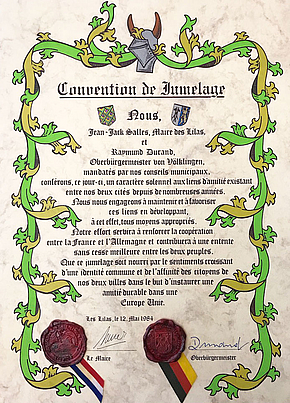 Convention de Jumelage
Nous,
Jean-Jack Salles, Maire des Lilas,
et
Raymund Durand,
Oberbürgermeister von Völklingen,
mandatés par nos conseils municipaux,
conférons, ce jour-ci, un caractère solennel aux liens d'amitié existant
entre nos deux cités depuis de nombreuses années.
Nous nous engageons à maintenir et à favoriser
ces liens en développant,
à cet effet, tous moyens appropriés.
Notre effort servira à renforcer la coopération
entre la France et l'Allemagne et contribuera à une entente
sans cesse meilleure entre les deux peuples.
Que ce jumelage soit nourri par le sentiments croissant
d'une identité commune et de l'affinité des citoyens de
nos deux villes dans le but d'instaurer une
amitié durable dans une
Europe Unie.
Les Lilas, le 12. Mai 1984
Le Maire
Oberbürgermeister